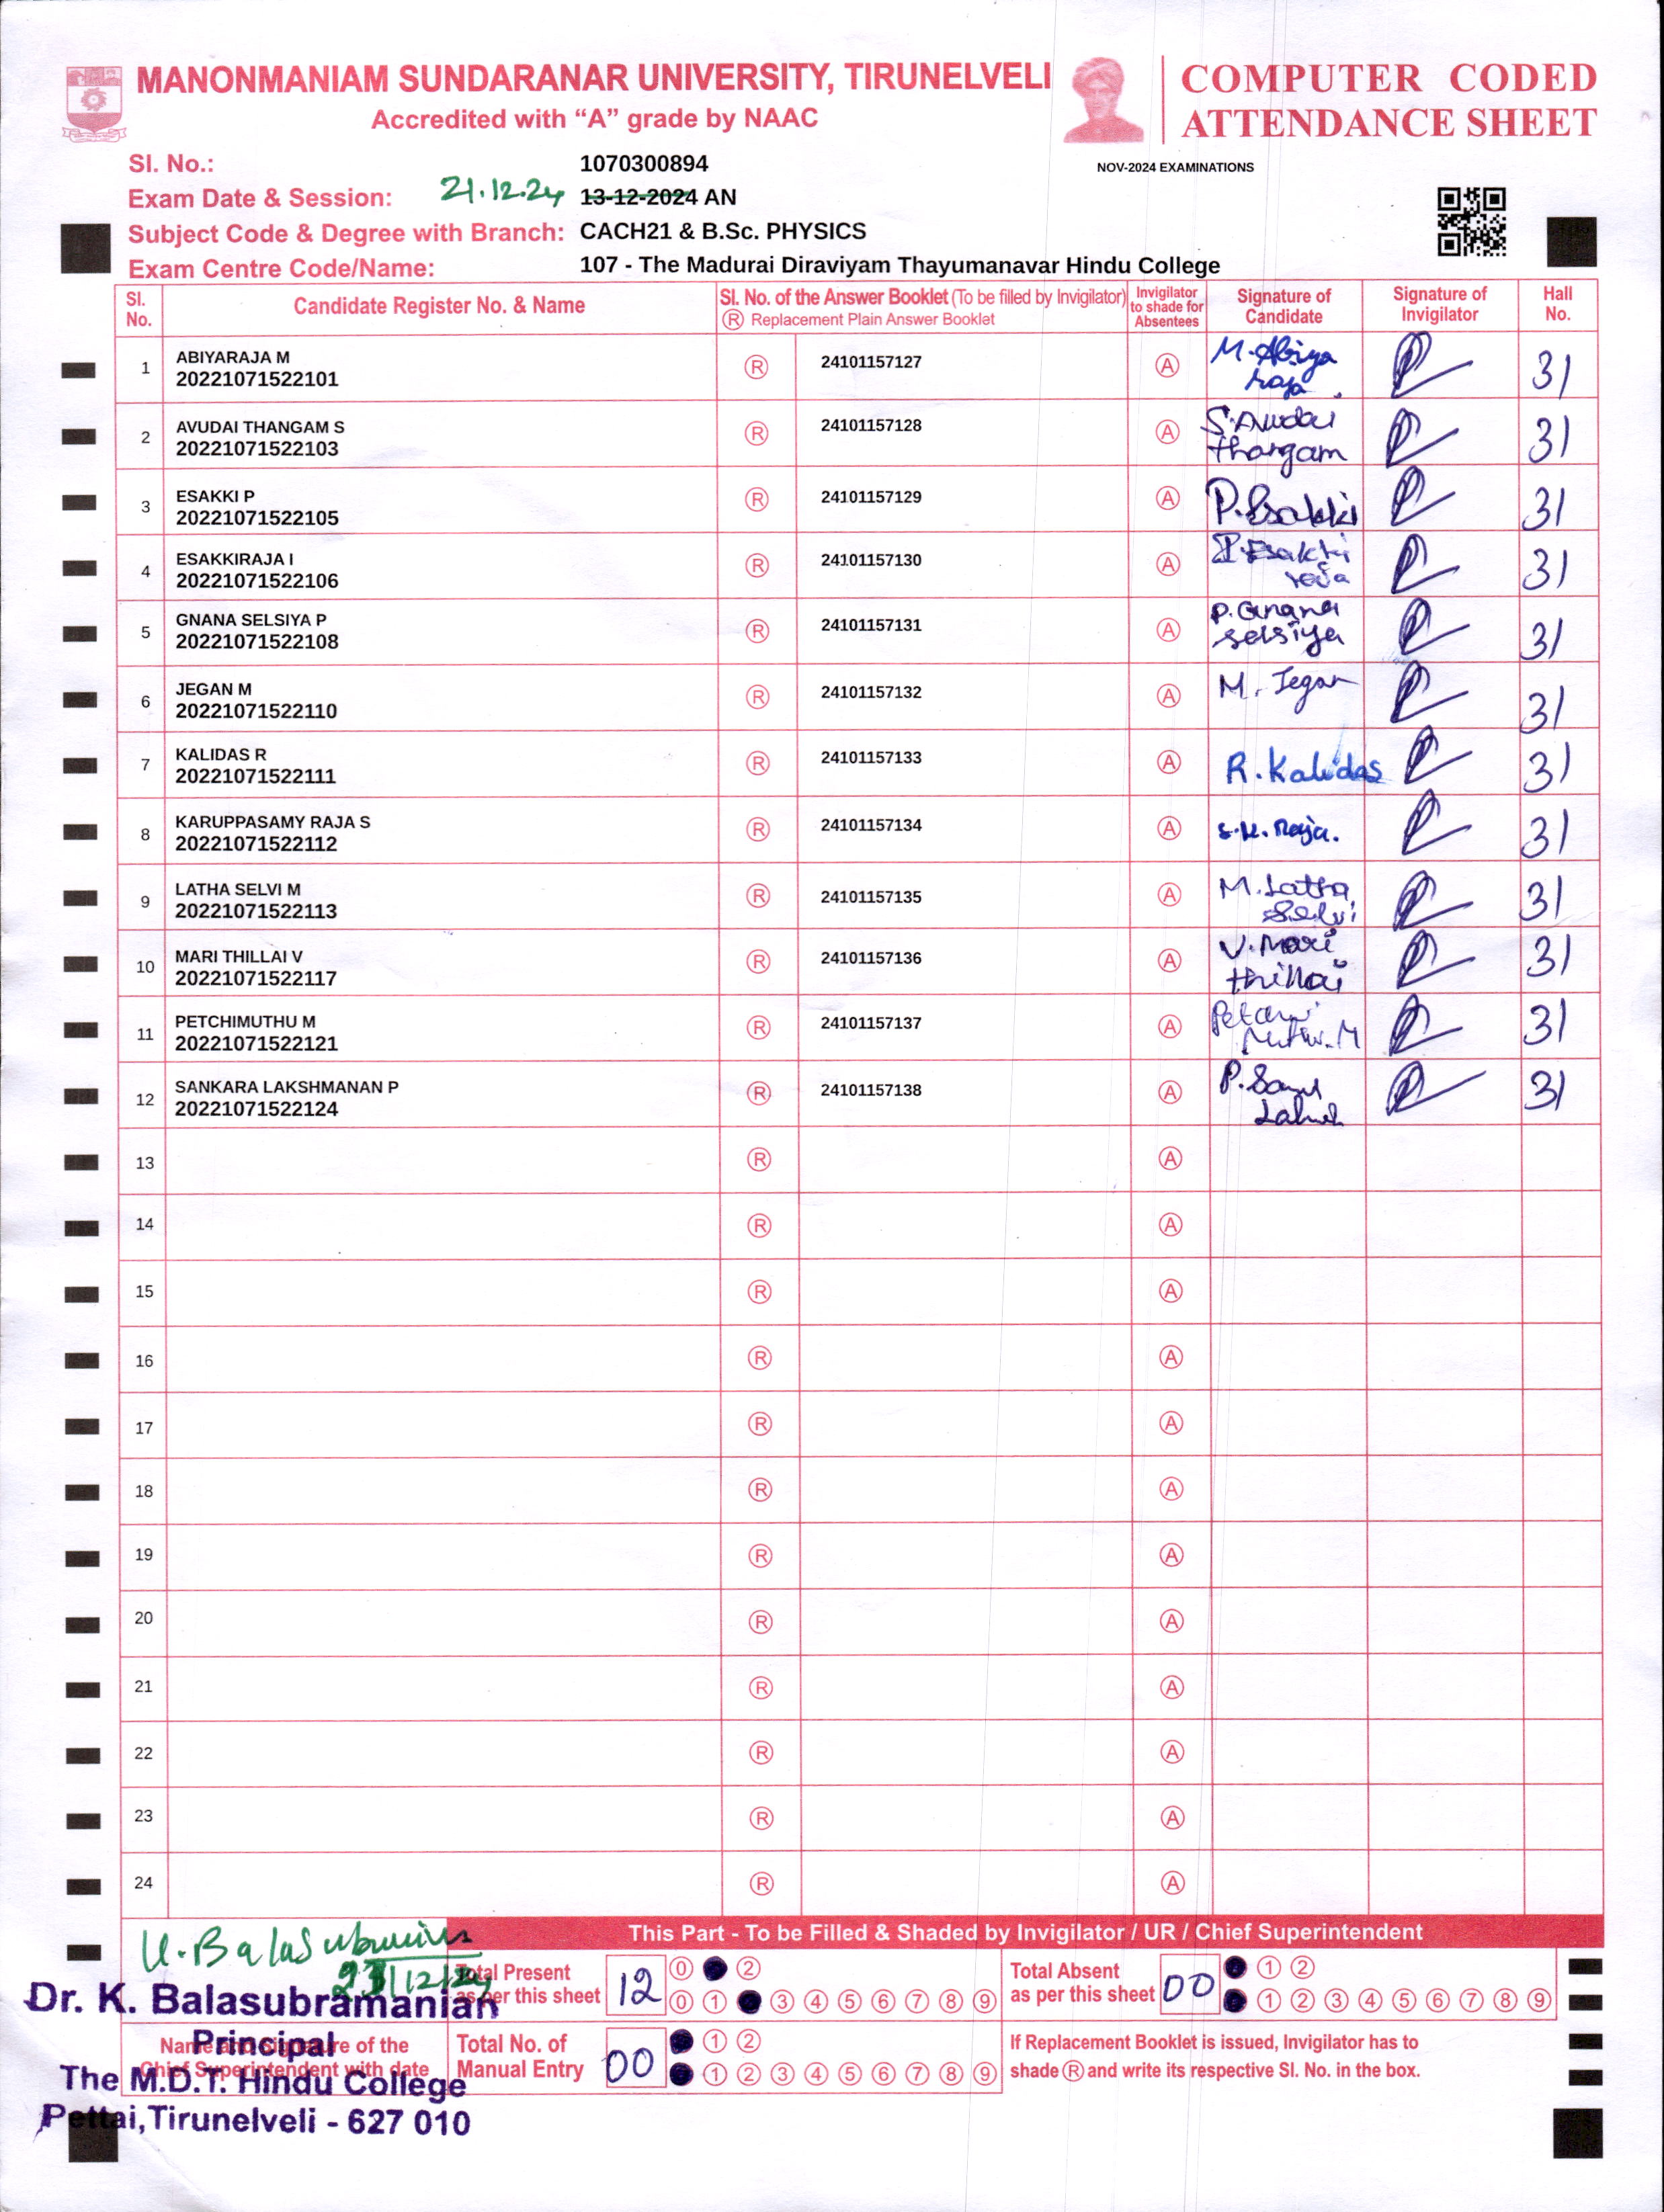 MANONMANIAM SUNDARANAR UNIVERSITY, TIRUNELVELI
Accredited with “A” grade by NAAC
COMPUTER CODED
ATTENDANCE SHEET
Sl. No.: 1070300894
NOV-2024 EXAMINATIONS
Exam Date & Session: 21.12.24 13-12-2024 AN
Subject Code & Degree with Branch: CACH21 & B.Sc. PHYSICS
Exam Centre Code/Name: 107 - The Madurai Diraviyam Thayumanavar Hindu College
Sl. No. Candidate Register No. & Name Sl. No. of the Answer Booklet (To be filled by Invigilator) Ⓡ Replacement Plain Answer Booklet Invigilator to shade for Absentees Signature of Candidate Signature of Invigilator Hall No.
1 ABIYARAJA M 20221071522101 Ⓡ 24101157127 Ⓐ M.Abiya raja 31
2 AVUDAI THANGAM S 20221071522103 Ⓡ 24101157128 Ⓐ S.Avudai thangam 31
3 ESAKKI P 20221071522105 Ⓡ 24101157129 Ⓐ P.Esakki 31
4 ESAKKIRAJA I 20221071522106 Ⓡ 24101157130 Ⓐ I.Esakki raja 31
5 GNANA SELSIYA P 20221071522108 Ⓡ 24101157131 Ⓐ P.Gnana selsiya 31
6 JEGAN M 20221071522110 Ⓡ 24101157132 Ⓐ M. Jegan 31
7 KALIDAS R 20221071522111 Ⓡ 24101157133 Ⓐ R.Kalidas 31
8 KARUPPASAMY RAJA S 20221071522112 Ⓡ 24101157134 Ⓐ S.K.Raja. 31
9 LATHA SELVI M 20221071522113 Ⓡ 24101157135 Ⓐ M.Latha Selvi 31
10 MARI THILLAI V 20221071522117 Ⓡ 24101157136 Ⓐ V.Mari thillai 31
11 PETCHIMUTHU M 20221071522121 Ⓡ 24101157137 Ⓐ 31
12 SANKARA LAKSHMANAN P 20221071522124 Ⓡ 24101157138 Ⓐ 31
13 Ⓡ Ⓐ
14 Ⓡ Ⓐ
15 Ⓡ Ⓐ
16 Ⓡ Ⓐ
17 Ⓡ Ⓐ
18 Ⓡ Ⓐ
19 Ⓡ Ⓐ
20 Ⓡ Ⓐ
21 Ⓡ Ⓐ
22 Ⓡ Ⓐ
23 Ⓡ Ⓐ
24 Ⓡ Ⓐ
This Part - To be Filled & Shaded by Invigilator / UR / Chief Superintendent
Total Present as per this sheet 12
0 2
0 1 3 4 5 6 7 8 9
Total Absent as per this sheet 00
1 2
1 2 3 4 5 6 7 8 9
Dr. K. Balasubramanian
Principal
The M.D.T. Hindu College
Pettai, Tirunelveli - 627 010
Name and Signature of the
Chief Superintendent with date
Total No. of Manual Entry 00
1 2
1 2 3 4 5 6 7 8 9
If Replacement Booklet is issued, Invigilator has to
shade Ⓡ and write its respective Sl. No. in the box.